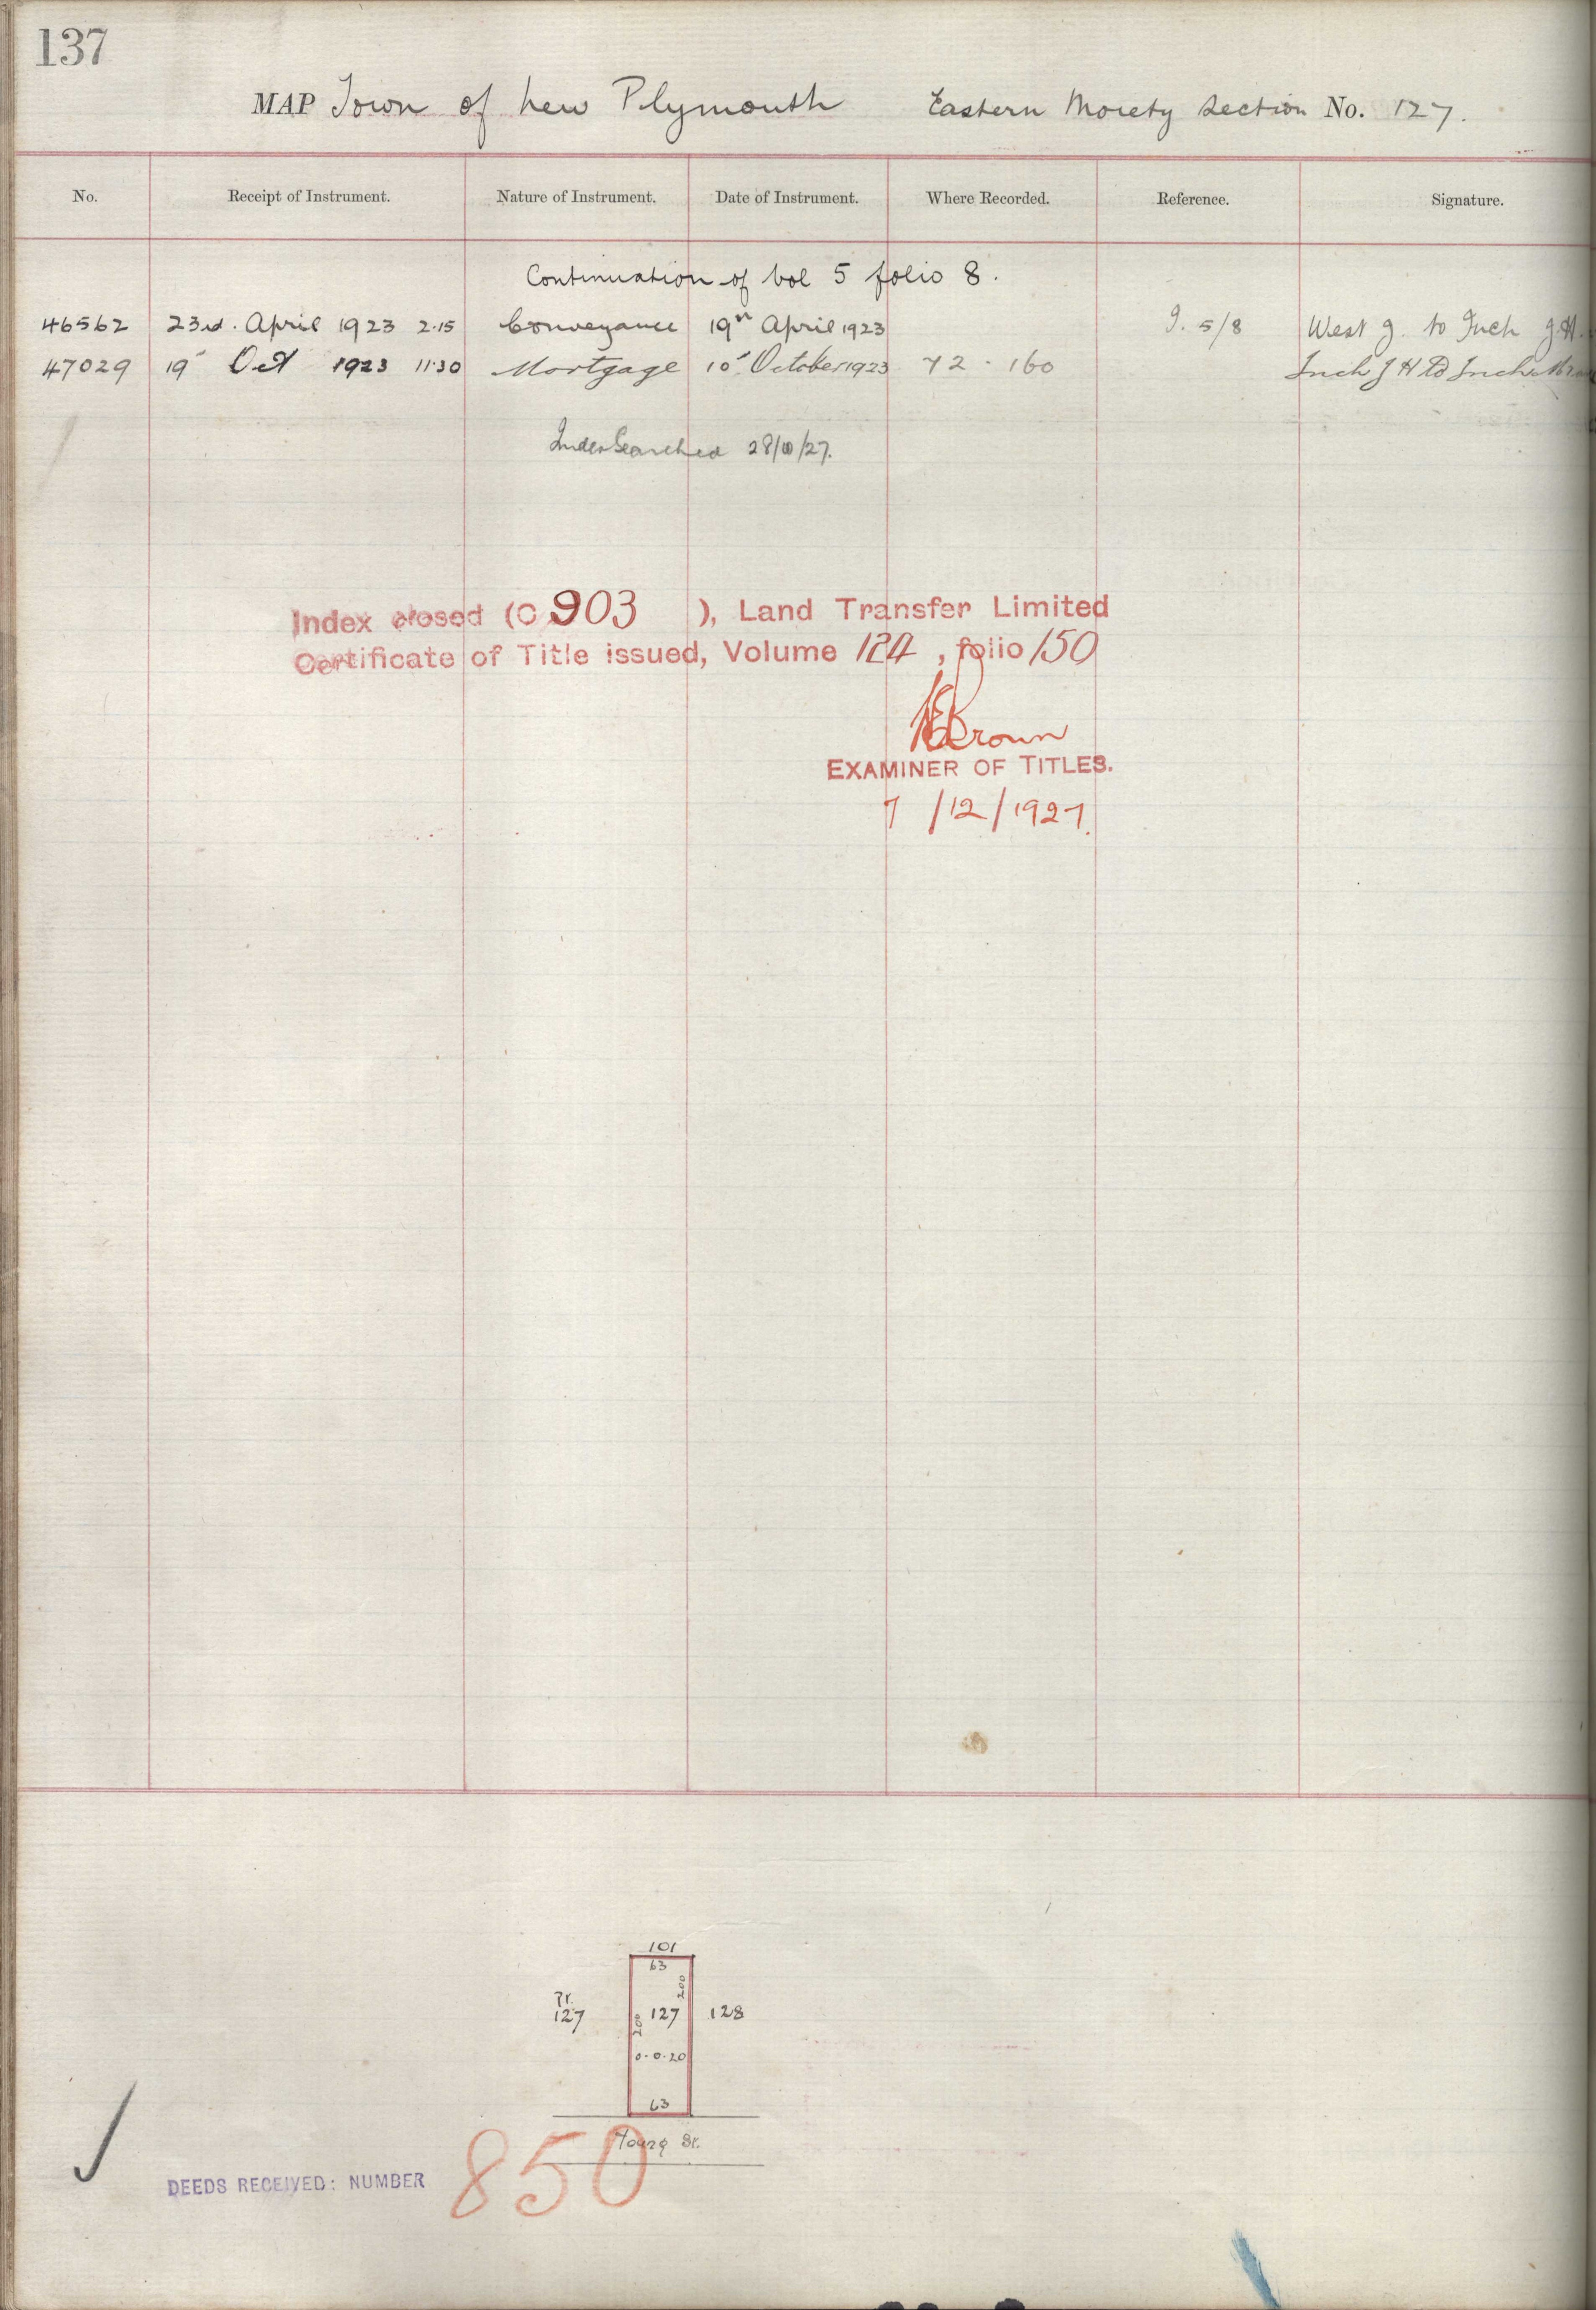 137
MAP Town of New Plymouth Eastern Moiety Section No. 127.
No. Receipt of Instrument. Nature of Instrument. Date of Instrument. Where Recorded. Reference. Signature.
Continuation of Vol 5 folio 8.
46562 23rd. April 1923 2.15 Conveyance 19th April 1923 I. 5/8 West J. to Inch J.H.
47029 19 Oct 1923 11.30 Mortgage 10 October 1923 72 . 160 Inch J H to Inch
Index Searched 28/10/27.
Index closed (C 903 ), Land Transfer Limited
Certificate of Title issued, Volume 124, folio 150
Brown
EXAMINER OF TITLES.
7/12/1927.
101
63
200
Pt.
127
200
127
128
0-0-20
63
Young St.
DEEDS RECEIVED: NUMBER 850